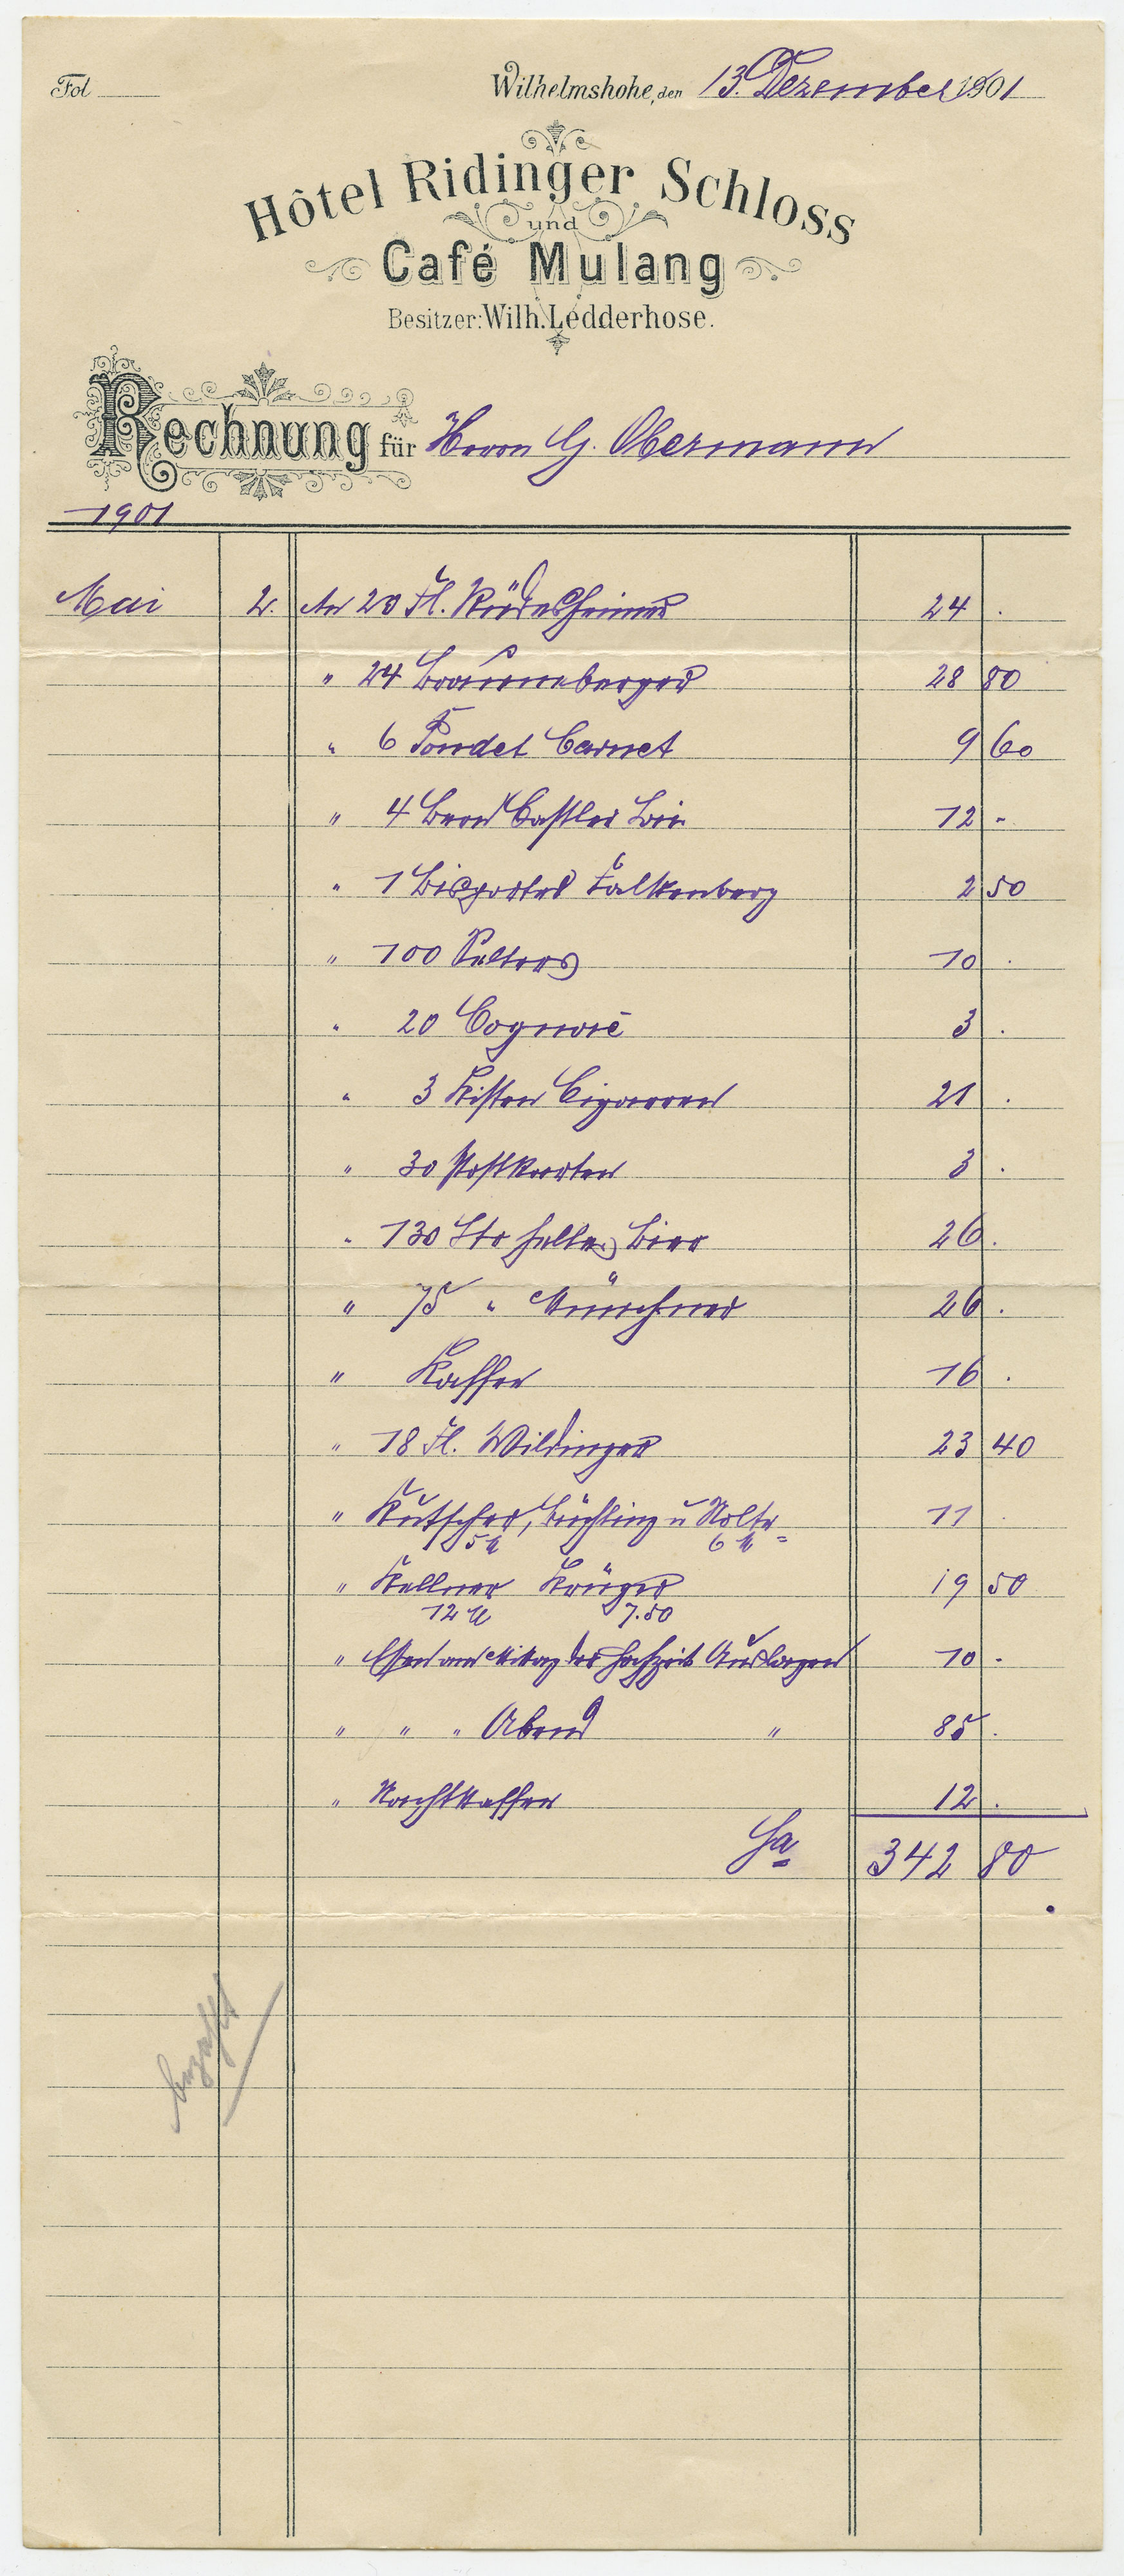 Fol
Wilhelmshohe, den 13. Dezember 1901
Hôtel Ridinger Schloss
und
Café Mulang
Besitzer: Wilh. Ledderhose.
Rechnung für Herrn G. Obermann
1901
Mai 2. An 20 Fl. Rüdesheimer 24 .
" 24 Brauneberger 28 80
" 6 Pondet Carnet 9 60
" 4 Bern Castler 12 -
" 1 Bisporter Falkenberg 2 50
" 100 Selters 10 .
" 20 Cognac 3 .
" 3 Kisten Cigarren 21 .
" 30 Postkarten 3 .
" 130 Ltr helles Bier 26 .
" 75 " Münchner 26 .
" Kaffee 16 .
" 18 Fl. Wildinger 23 40
" Kutscher, Lüchting u Nolte 11 .
5 M 6 M
" Kellner Krüger 19 50
12 M 7.50
" Essen am Mittag der Hochzeit Auslagen 10 -
" " " Abend " 85 .
" Nachtkaffee 12 .
Sa 342 80
bezahlt